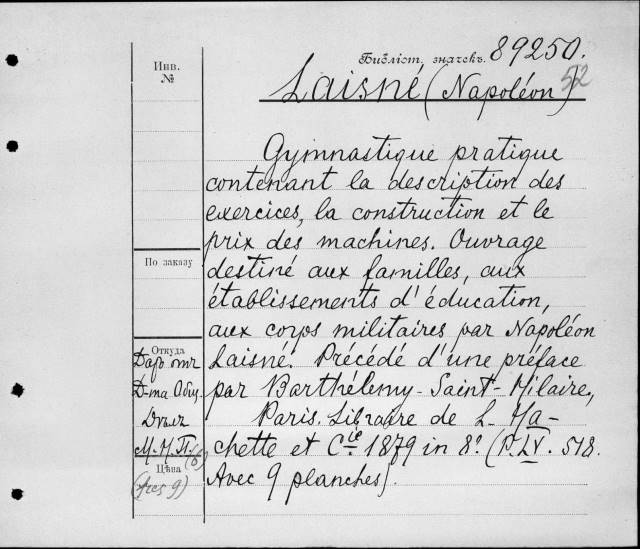 Инв.
№
Библіот. значекъ. 89250.
52
Laisné (Napoléon)
Gymnastique pratique
contenant la description des
exercices, la construction et le
prix des machines. Ouvrage
destiné aux familles, aux
établissements d'éducation,
aux corps militaires par Napoléon
Laisné. Précédé d'une préface
par Barthélemy-Saint-Hilaire,
Paris. Libraire de L. Ha-
chette et Cie 1879 in 8º. (P. LV. 518.
Avec 9 planches).
По заказу
Откуда
Даръ отъ
Д-та Общ.
Дѣлъ
М. И. П. (6)
Цѣна